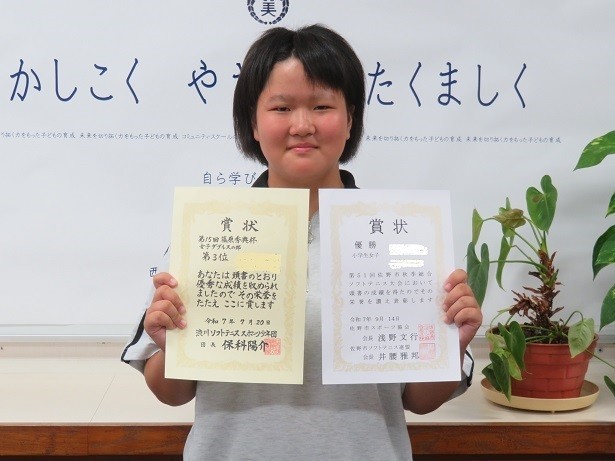 美
かしこく や たくましく
未来を切り拓く力をもった子どもの育成 未来を切り拓く力をもった子どもの育成 コミュニティスクール
未来を切り拓く力をもった子どもの育成 未来を切り拓く力をもった
自ら学び
賞状
第15回篠原秀典杯
女子ダブルス二部
第3位
あなたは頭書のとおり
優秀な成績を収められ
ましたのでその栄誉を
たたえここに賞します
令和7年7月20日
渋川ソフトテニススポーツ少年団
団長 保科陽介
賞状
優勝
小学生女子
第51回佐野市秋季総合
ソフトテニス大会において
頭書の成績を得たのでその
栄誉を讃え表彰します
令和7年9月14日
佐野市スポーツ協会
会長 浅野文行
佐野市ソフトテニス連盟
会長 井腰雅邦